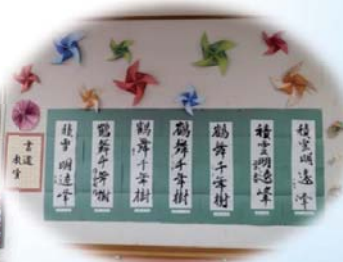 書道
教室
積雪明遠峰
鶴舞千年樹
鶴舞千年樹
鶴舞千年樹
鶴舞千年樹
積雪明遠峰
積雪明遠峰